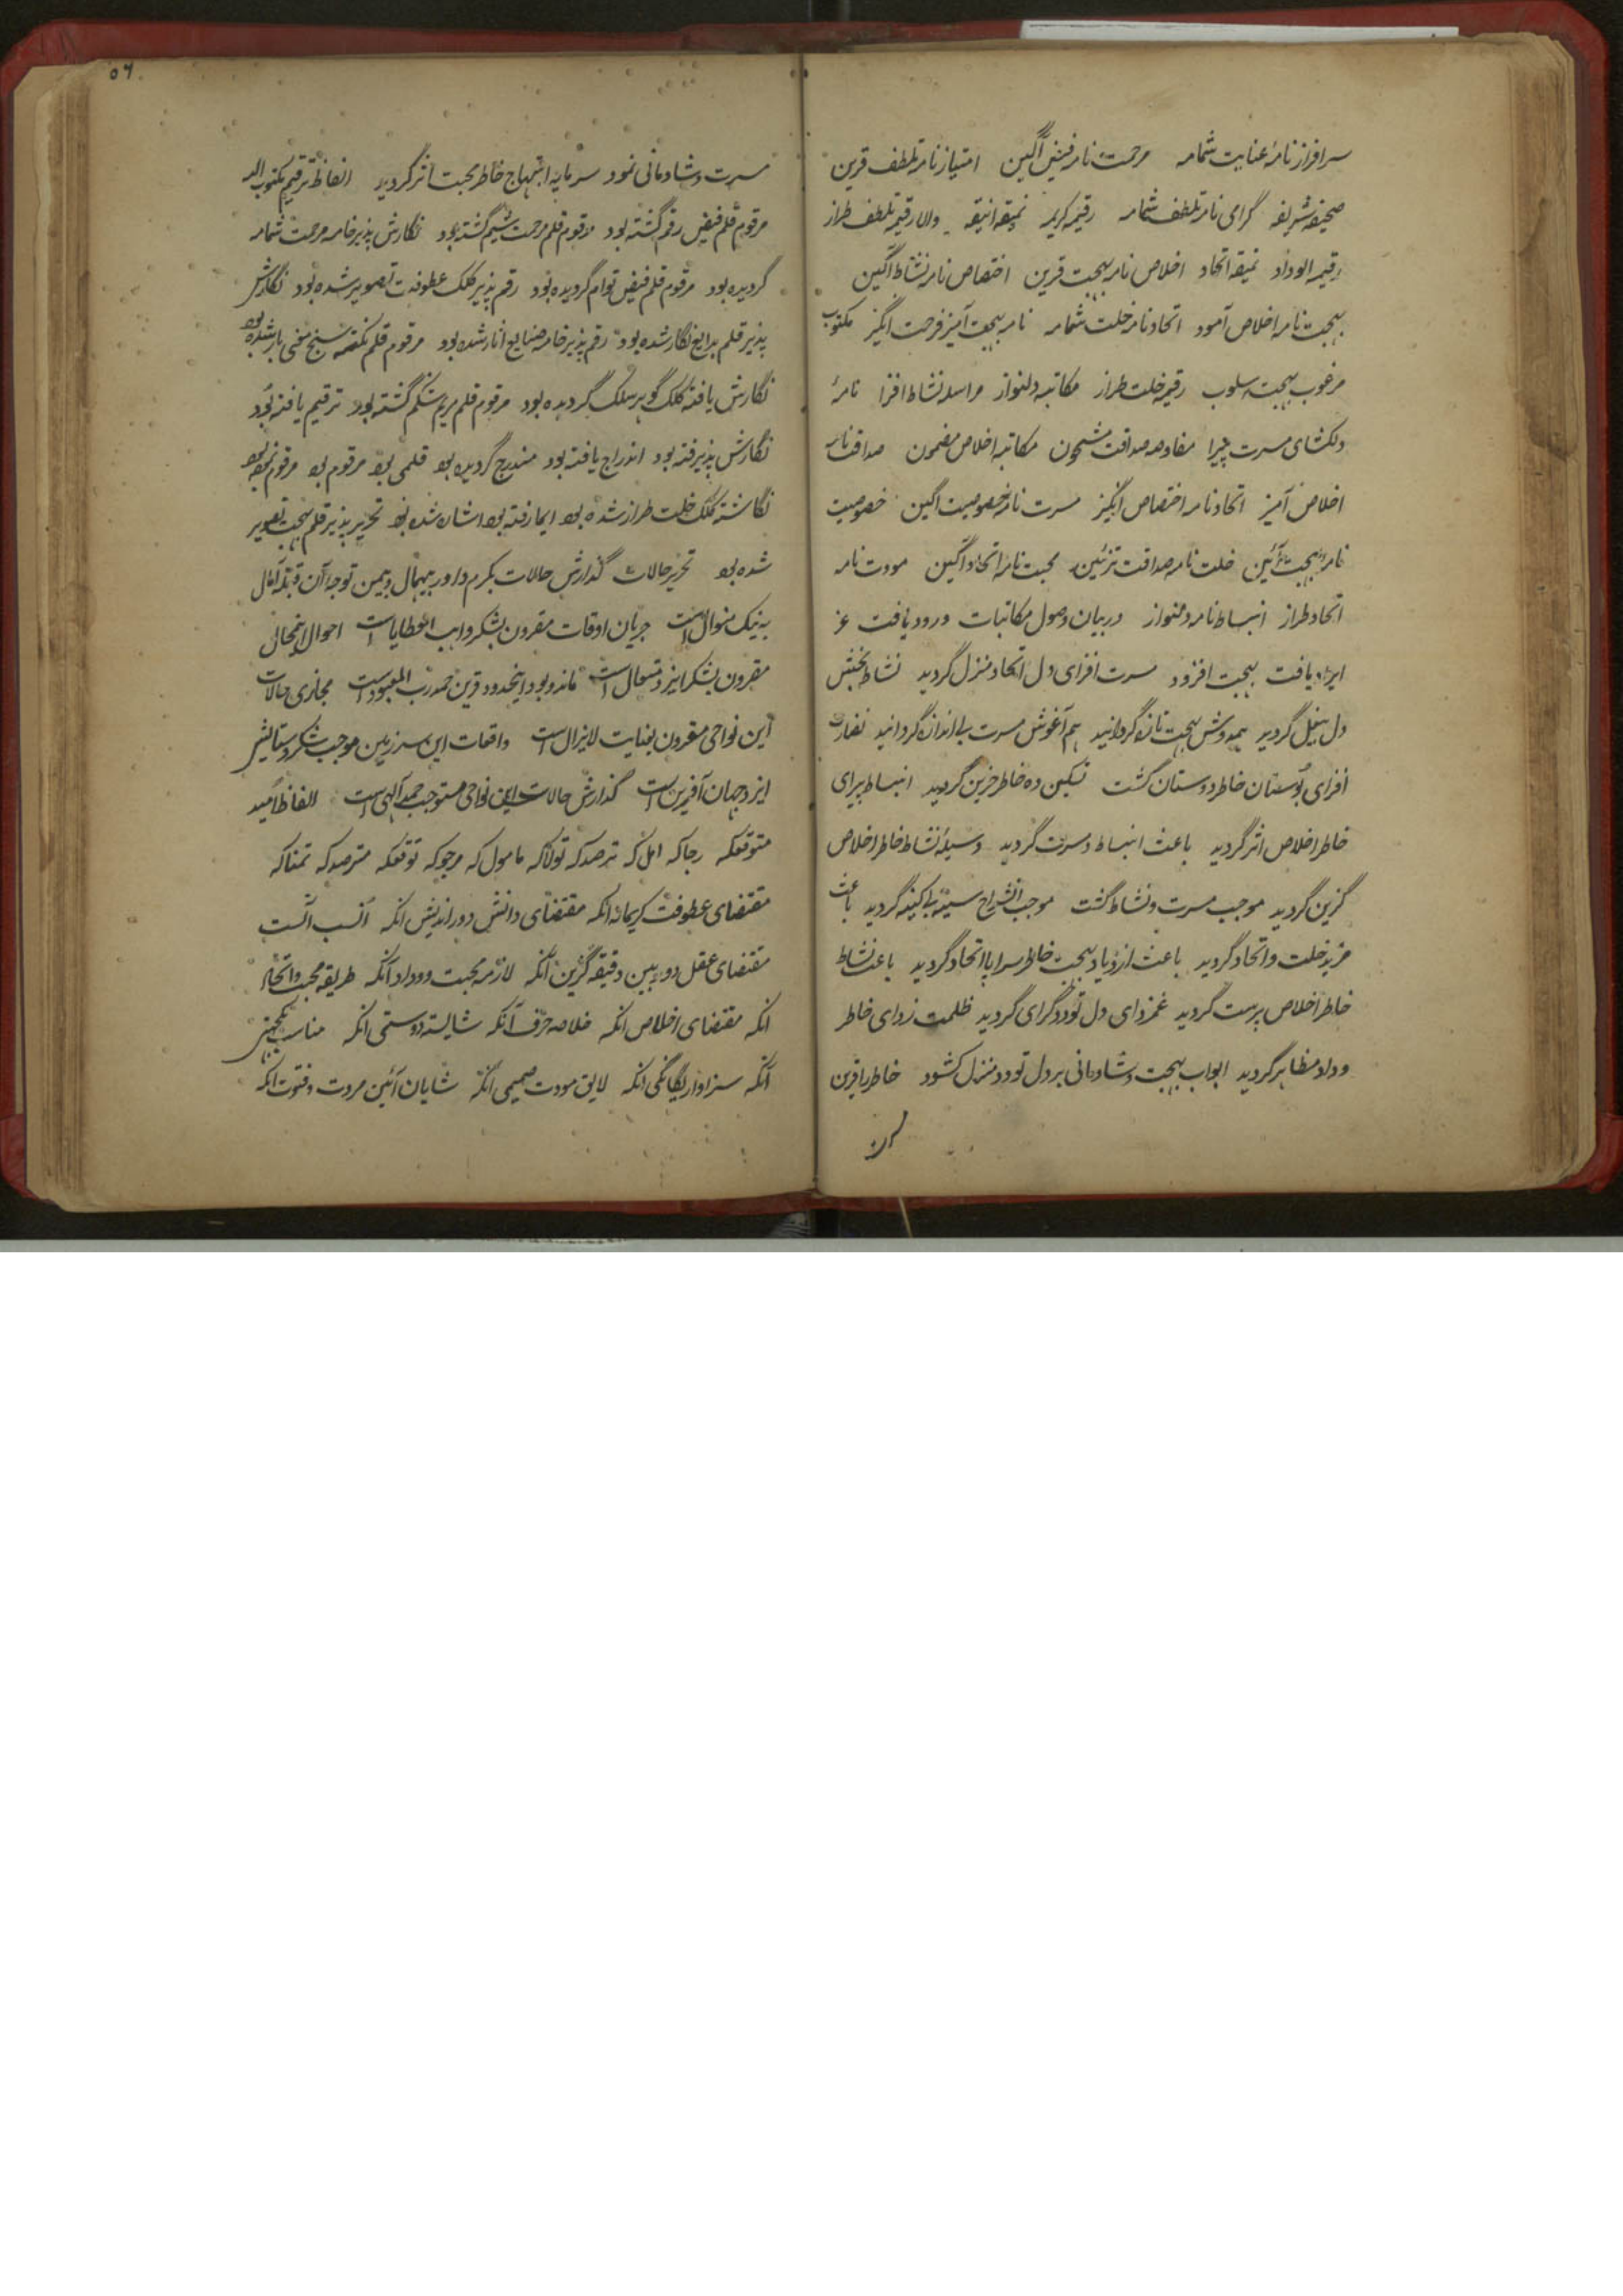 سرافراز نامهٔ عنایت شمامه مرحمت نامه فیض آگین امتیاز نامه تلطف قرین
صحیفه شریفه گرامی نامه تلطف شمامه رقیمه کریمه نمیقه انیقه والا رقیمه تلطف طراز
رقیمه الوداد نمیقه اتحاد اخلاص نامه بهجت قرین اختصاص نامه نشاط آگین
بهجت نامه اخلاص آمود اتحاد نامه خلت شمامه نامه بهجت آمیز فرحت انگیز مکتوب
مرغوب بهجت سلوب رقیمه خلت طراز مکاتبه دلنواز مراسله نشاط افزا نامهٔ
دلکشای مسرت پیرا مفاوضه صداقت مشحون مکاتبه اخلاص مضمون صداقت نامه
اخلاص آمیز اتحاد نامه اختصاص انگیز مسرت نامه خصوصیت اگین خصوصیت
نامهٔ بهجت آئین خلت نامه صداقت تزئین محبت نامهٔ اتحاد آگین مودت نامه
اتحاد طراز انبساط نامه دلنواز در بیان وصول مکاتبات ورود یافت عز
ایراد یافت بهجت افزود مسرت افزای دل اتحاد منزل گردید نشاط بخش
دل بیغل گردید همدوش بهجت تازه گردانید هم آغوش مسرت بی اندازه گردانید نضارت
افزای بوستان خاطر دوستان گشت تسکین ده خاطر حزین گردید انبساط پیرای
خاطر اخلاص اثر گردید باعث انبساط و مسرت گردید وسیلهٔ نشاط خاطر اخلاص
گزین گردید موجب مسرت و نشاط گشت موجب انشراح سینهٔ بی کینه گردید باعث
مزید خلت و اتحاد گردید باعث ازدیاد بهجت خاطر سراپا اتحاد گردید باعث نشاط
خاطر اخلاص پرست گردید غمزدای دل تودد گرای گردید ظلمت زدای خاطر
وداد مظاهر گردید ابواب بهجت و شادمانی بر دل تودد منزل کشود خاطر را قرین
۵۶
مسرت و شادمانی نمود سرمایه ابتهاج خاطر محبت اثر گردید الفاظ ترقیم مکتوب الیه
مرقوم قلم فیض رقم گشته بود مرقوم قلم مرحمت شیم گشته بود نگارش پذیر خامه مرحمت شمامه
گردیده بود مرقوم قلم فیض توام گردیده بود رقم پذیر کلک عطوفت تصویر شده بود نگارش
پذیر قلم بدایع نگار شده بود رقم پذیر خامه صنایع آثار شده بود مرقوم قلم نکته سنج معنی بار شده بود
نگارش یافته کلک گوهر سلک گردیده بود مرقوم قلم مریم شکم گشته بود ترقیم یافته بود
نگارش پذیرفته بود اندراج یافته بود مندرج گردیده بود قلمی بود مرقوم بود مرقوم نموده بود
نگاشته کلک خلت طراز شده بود ایما رفته بود اشان شده بود تحریر پذیر قلم بهجت تصویر
شده بود تحریر حالات گذارش حالات بکرم داور بیهمال و بیمن توجه آن قبله آمال
به نیک منوال است جریان اوقات مقرون بشکر واهب العطایا است احوال اینجائی
مقرون بشکر ایزد متعال است ماند و بود اینحدود قرین حمد رب المعبود است مجاری حالات
این نواحی مقرون بعنایت لایزال است واقعات این سرزمین موجب شکر و ستایش
ایزد جهان آفرین است گذارش حالات این نواحی مستوجب حمد الهی است الفاظ امید
متوقعکه رجا که امل که ترصد که تولا که مامول که مرجو که توقعکه مترصد که تمنا که
مقتضای عطوفت کریمانه انکه مقتضای دانش دور اندیش انکه انسب آنست
مقتضای عقل دوربین دقیقه گزین آنکه لازمه محبت و وداد آنکه طریقه محبت و اتحاد
انکه مقتضای اخلاص انکه خلاصه حرف آنکه شایسته دوستی انکه مناسب یکجهتی
آنکه سزاوار یگانگی انکه لایق مودت صمیمی انکه شایان آئین مروت و فتوت انکه